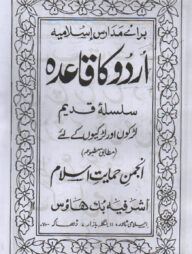 برائے مدارس اسلامیہ
اُردو کا قاعدہ
سلسلۂ قدیم
لڑکوں اور لڑکیوں کے لئے
انجمن حمایت اسلام
اشرفیہ بک ہاؤس